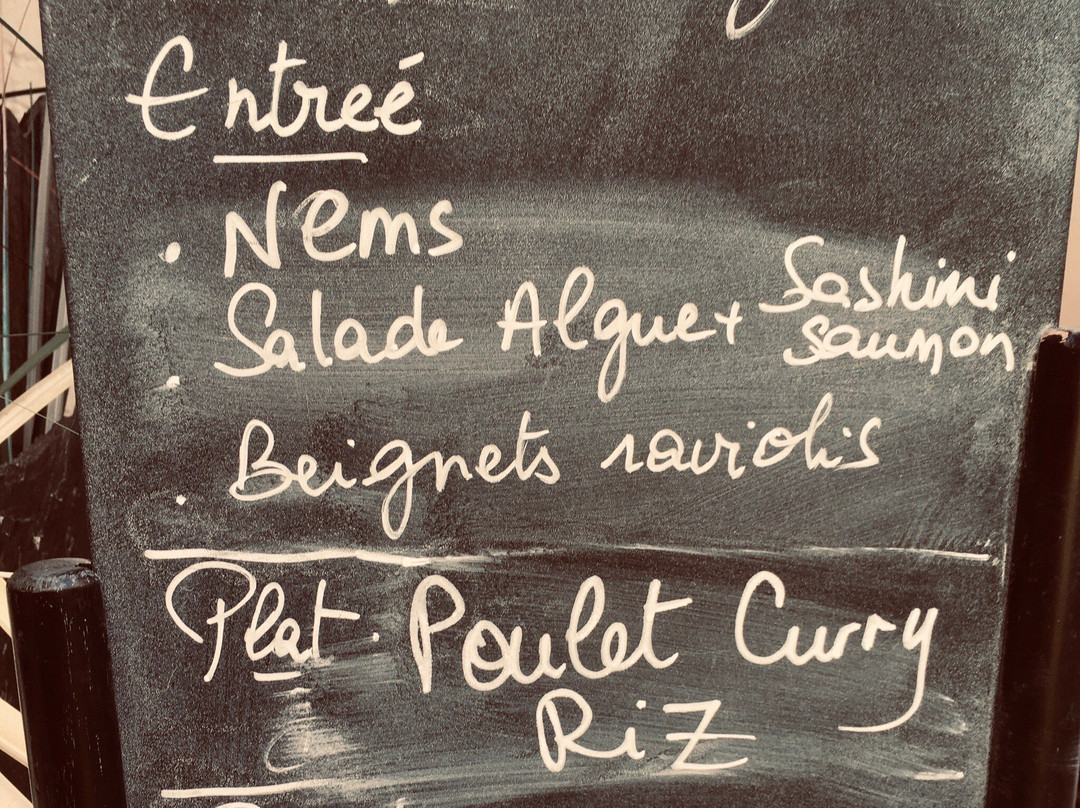 Entreé
• Nems
• Salade Algue + Sashimi
saumon
• Beignets raviolis
Plat • Poulet Curry
Riz